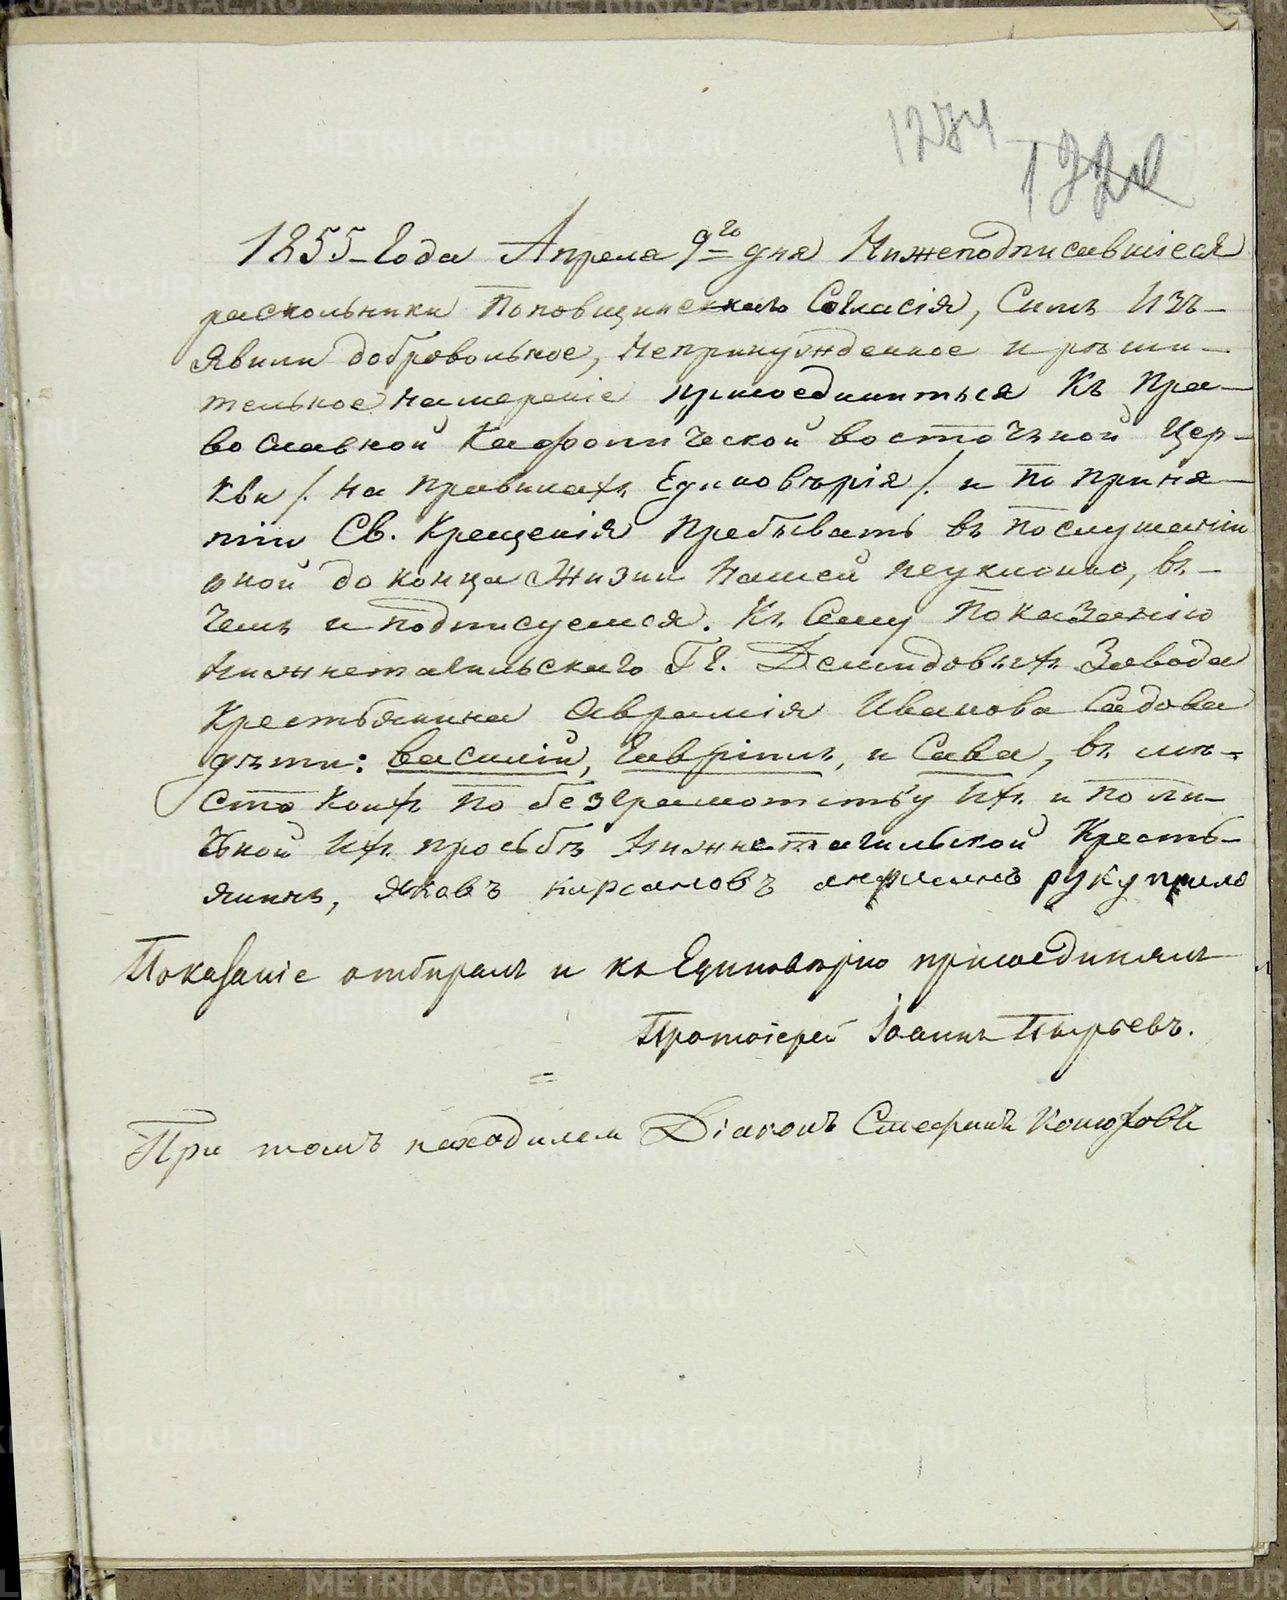 1284
1855 Года Апреля 9го дня Нижеподписавшіеся
раскольники Поповщинскаго Согласія, Симъ Изъ-
явили добровольное, Непринужденное и рѣши-
тельное намереніе присоединиться Къ Пра-
вославной Кафолической восточной Цер-
кви /. На правилахъ Единовѣрія /. и По приня-
тіи Св. Крещенія Пребывать въ Послушаніи
оной до конца Жизни Нашей неуклонно, въ
чемъ и Подписуемся. Къ Сему Показанію
Нижнетагильскаго Гг. Демидовыхъ Завода
Крестьянина Аврамія Иванова Садова
дѣти: Василій, Гавріилъ, и Сава, въ мѣ-
сто Коихъ По безграмотству Ихъ и По ли-
чной Ихъ просьбѣ Нижнетагильской Кресть-
янинъ, Яковъ Кирсановъ руку прило
Показаніе отбиралъ и къ Единовѣрію присоединялъ
Протоіерей Іоаннъ Пырьевъ.
При томъ находился Діаконъ Стефанъ Конюховъ
METRIKI.GASO-URAL.RU